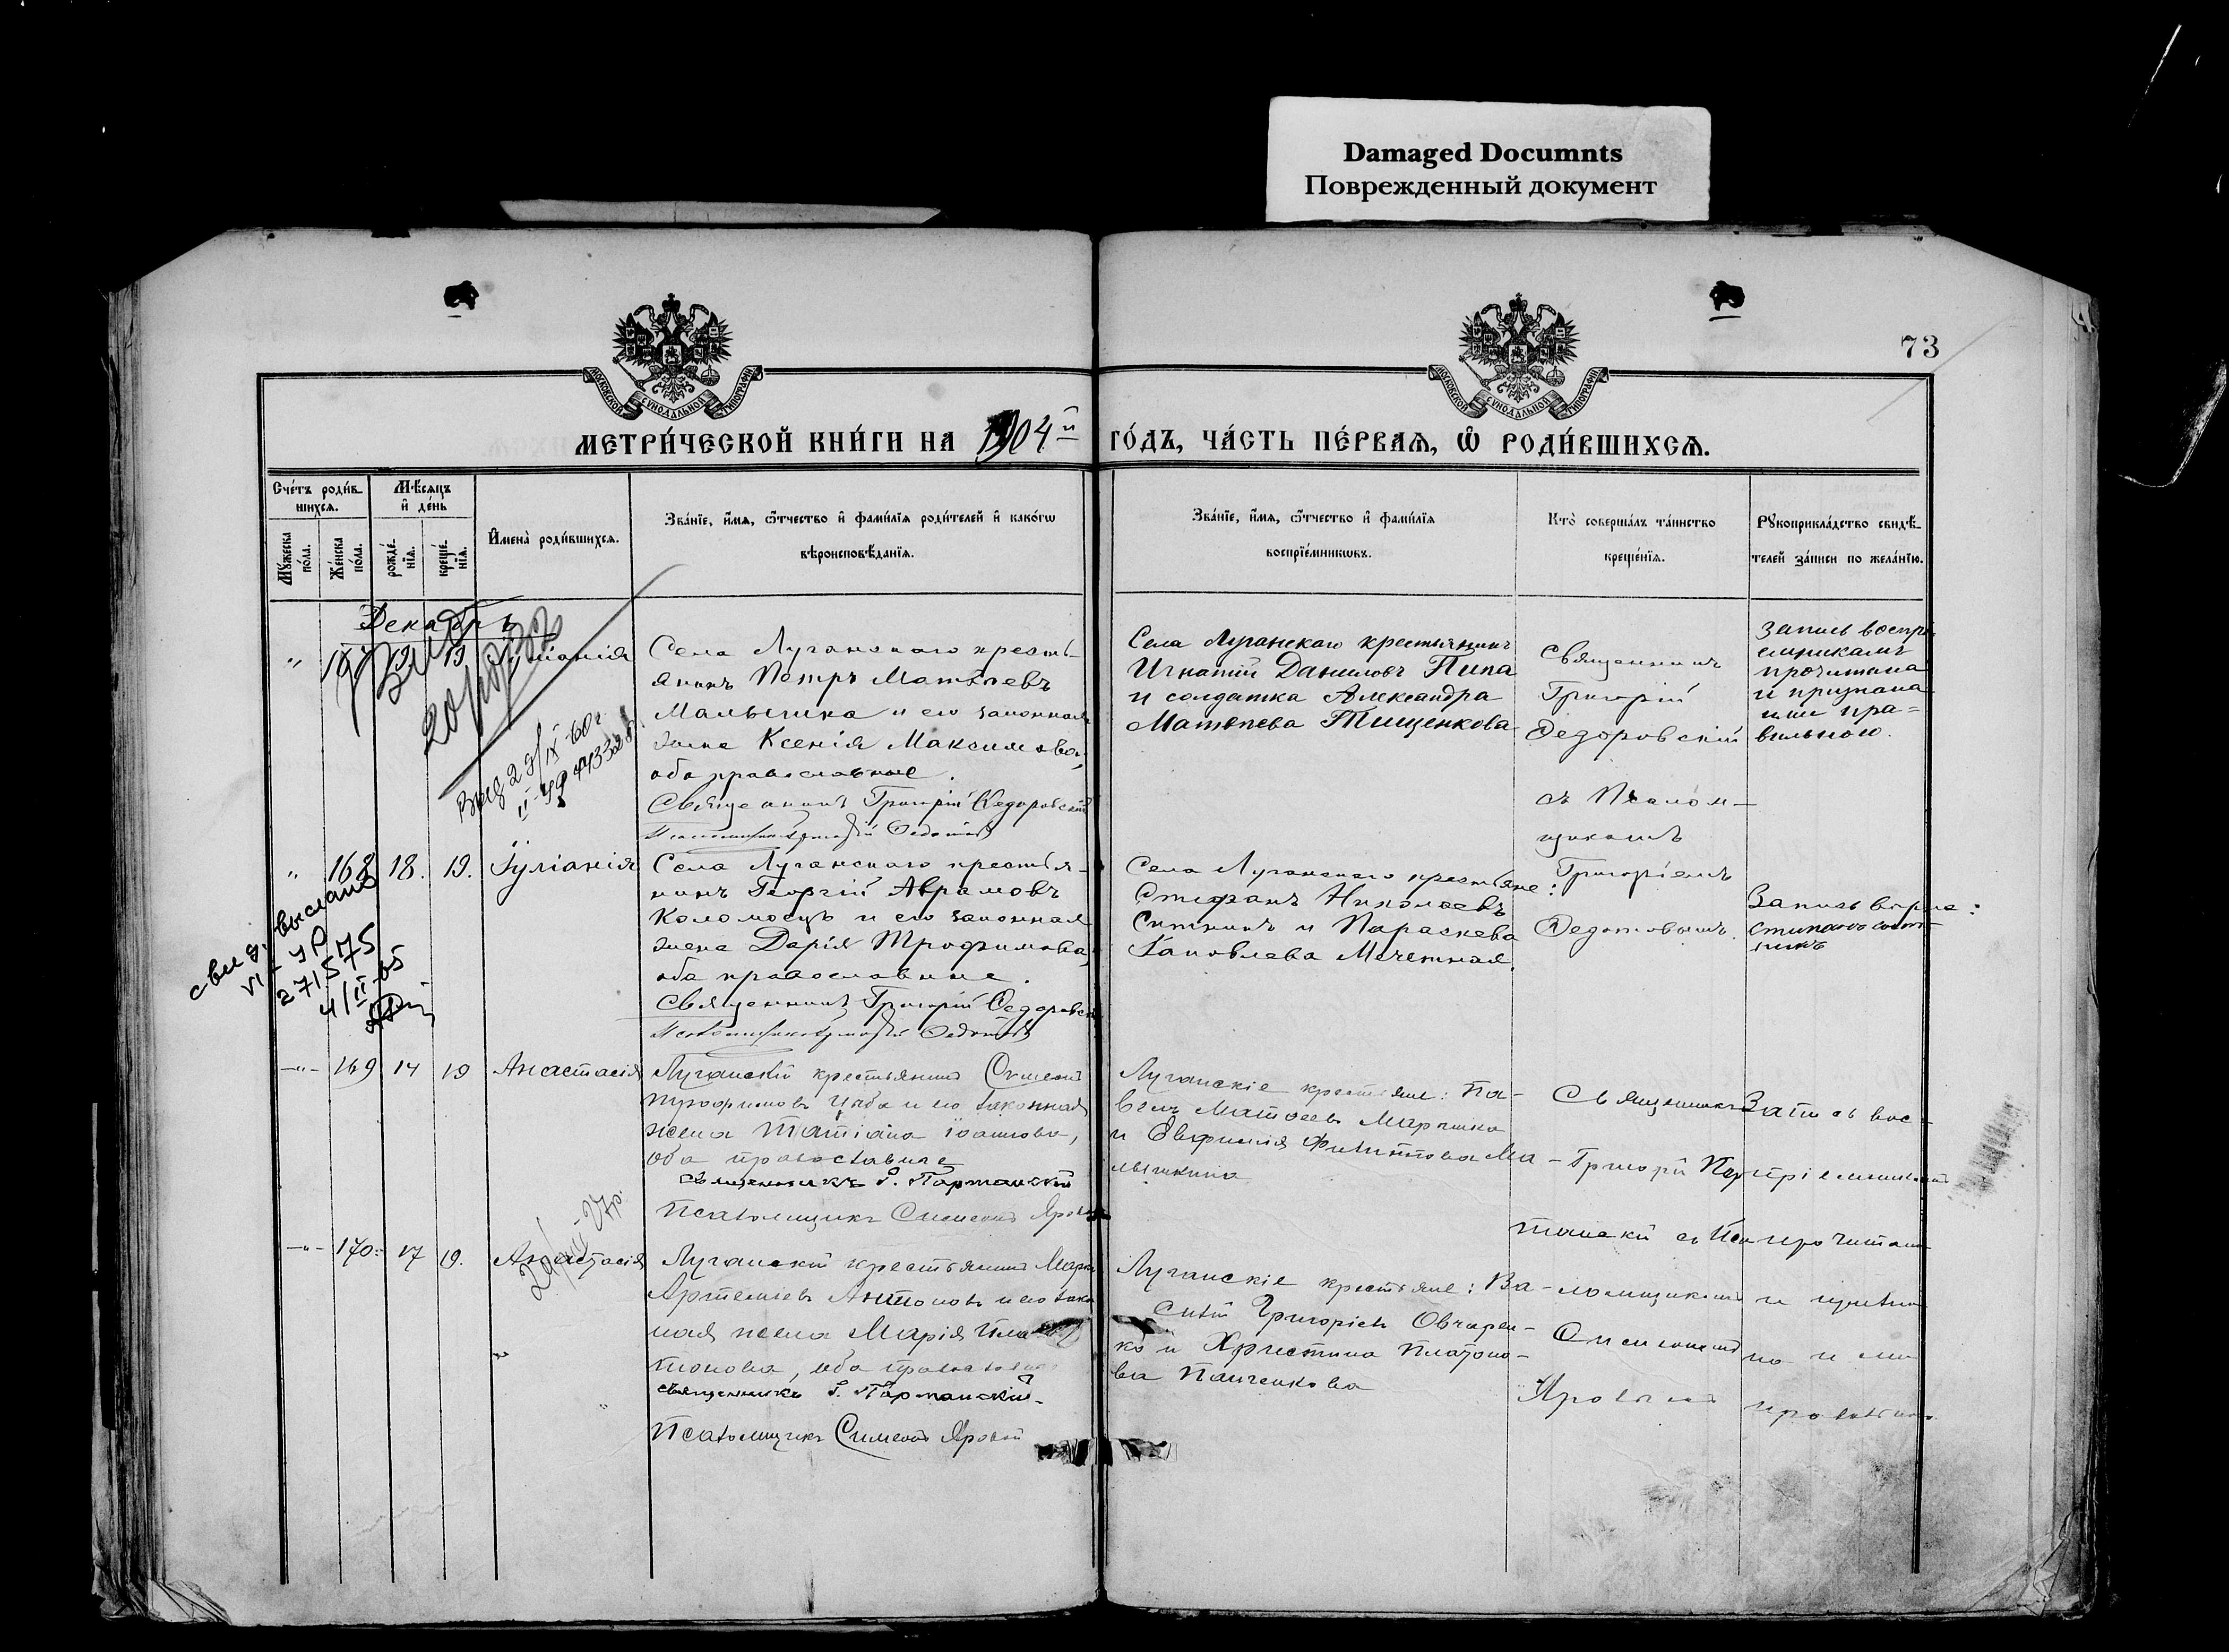 Damaged Documnts
Поврежденный документ
73
МОСКОВСКОЙ СѴНОДАЛЬНОЙ ТИПОГРАФІИ
МОСКОВСКОЙ СѴНОДАЛЬНОЙ ТИПОГРАФІИ
МЕТРИ́ЧЕСКОЙ КНИ́ГИ НА 1904й ГО́ДЪ, ЧА́СТЬ ПЕ́РВАѦ, Ѡ҆ РОДИ́ВШИХСѦ.
Сче́тъ роди́в-
шихсѧ.
Мꙋ́жеска по́ла.
Же́нска по́ла.
Мѣ́сѧцъ и҆ де́нь
рожде́-нїѧ.
креще́-нїѧ.
И҆мена̀ роди́вшихсѧ.
Зва́нїе, и҆́мѧ, ѻ҆́тчество и҆ фами́лїѧ роди́телей и҆ како́гѡ
вѣроисповѣ́данїѧ.
Зва́нїе, и҆́мѧ, ѻ҆́тчество и҆ фами́лїѧ
воспрїе́мникѡвъ.
Кто̀ соверша́лъ та́инство
креще́нїѧ.
Рꙋкоприкла́дство свидѣ́-
телей за́писи по жела́нїю.
Декабрь
" 167 13 19 Іуліанія
Села Луганскаго кресть-
янинъ Петръ Матѳеевъ
Малышка и его законная
жена Ксенія Максимова,
оба православные.
Священникъ Григорій Ѳедоровскій
Псаломщикъ Григорій Ѳедотовъ
Села Луганскаго крестьянинъ
Игнатій Даниловъ Пипа
и солдатка Александра
Матѳеева Тищенкова
Священникъ
Григорій
Ѳедоровскій
съ Псалом-
щикомъ
Григоріемъ
Ѳедотовымъ.
Запись воспрі
емникамъ
прочитана
и признана
ими пра-
вильною.
" 168 18. 19. Іуліанія
Села Луганскаго крестья-
нинъ Георгій Аврамовъ
Коломоецъ и его законная
жена Дарія Трофимова,
оба православные.
Священникъ Григорій Ѳедоровскій
Псаломщикъ Григорій Ѳедотовъ
Села Луганскаго крестьяне:
Стефанъ Николаевъ
Ситникъ и Параскева
Іаковлева Мечетная.
271575
4/II-65
-"- 169 14 19 Анастасія
Луганскій крестьянинъ Симеонъ
Трофимовъ Цыба и его законная
жена Татіана Іоаннова,
оба православные
Священникъ Г. Портанскій
Псаломщикъ Симеонъ Яровой
Луганскіе крестьяне: Па-
велъ Матѳеевъ
и Евфимія Филиппова Ма-
лышкина
Священникъ
Григорій Пор
танскій съ Пса
ломщикомъ
Симеономъ
Яровымъ
Запись вос-
пріемникамъ
прочитана
и признана
ими
правильною
-"- 170 17 19. Анастасія
Луганскій крестьянинъ Маркъ
Артемьевъ Антоновъ и его закон
ная жена Марія Пла
тонова, оба православные
Священникъ Г. Портанскій
Псаломщикъ Симеонъ Яровой
Луганскіе крестьяне: Ва-
силій Григорьевъ Овчарен-
ко и Христина Платоно-
ва Панченкова